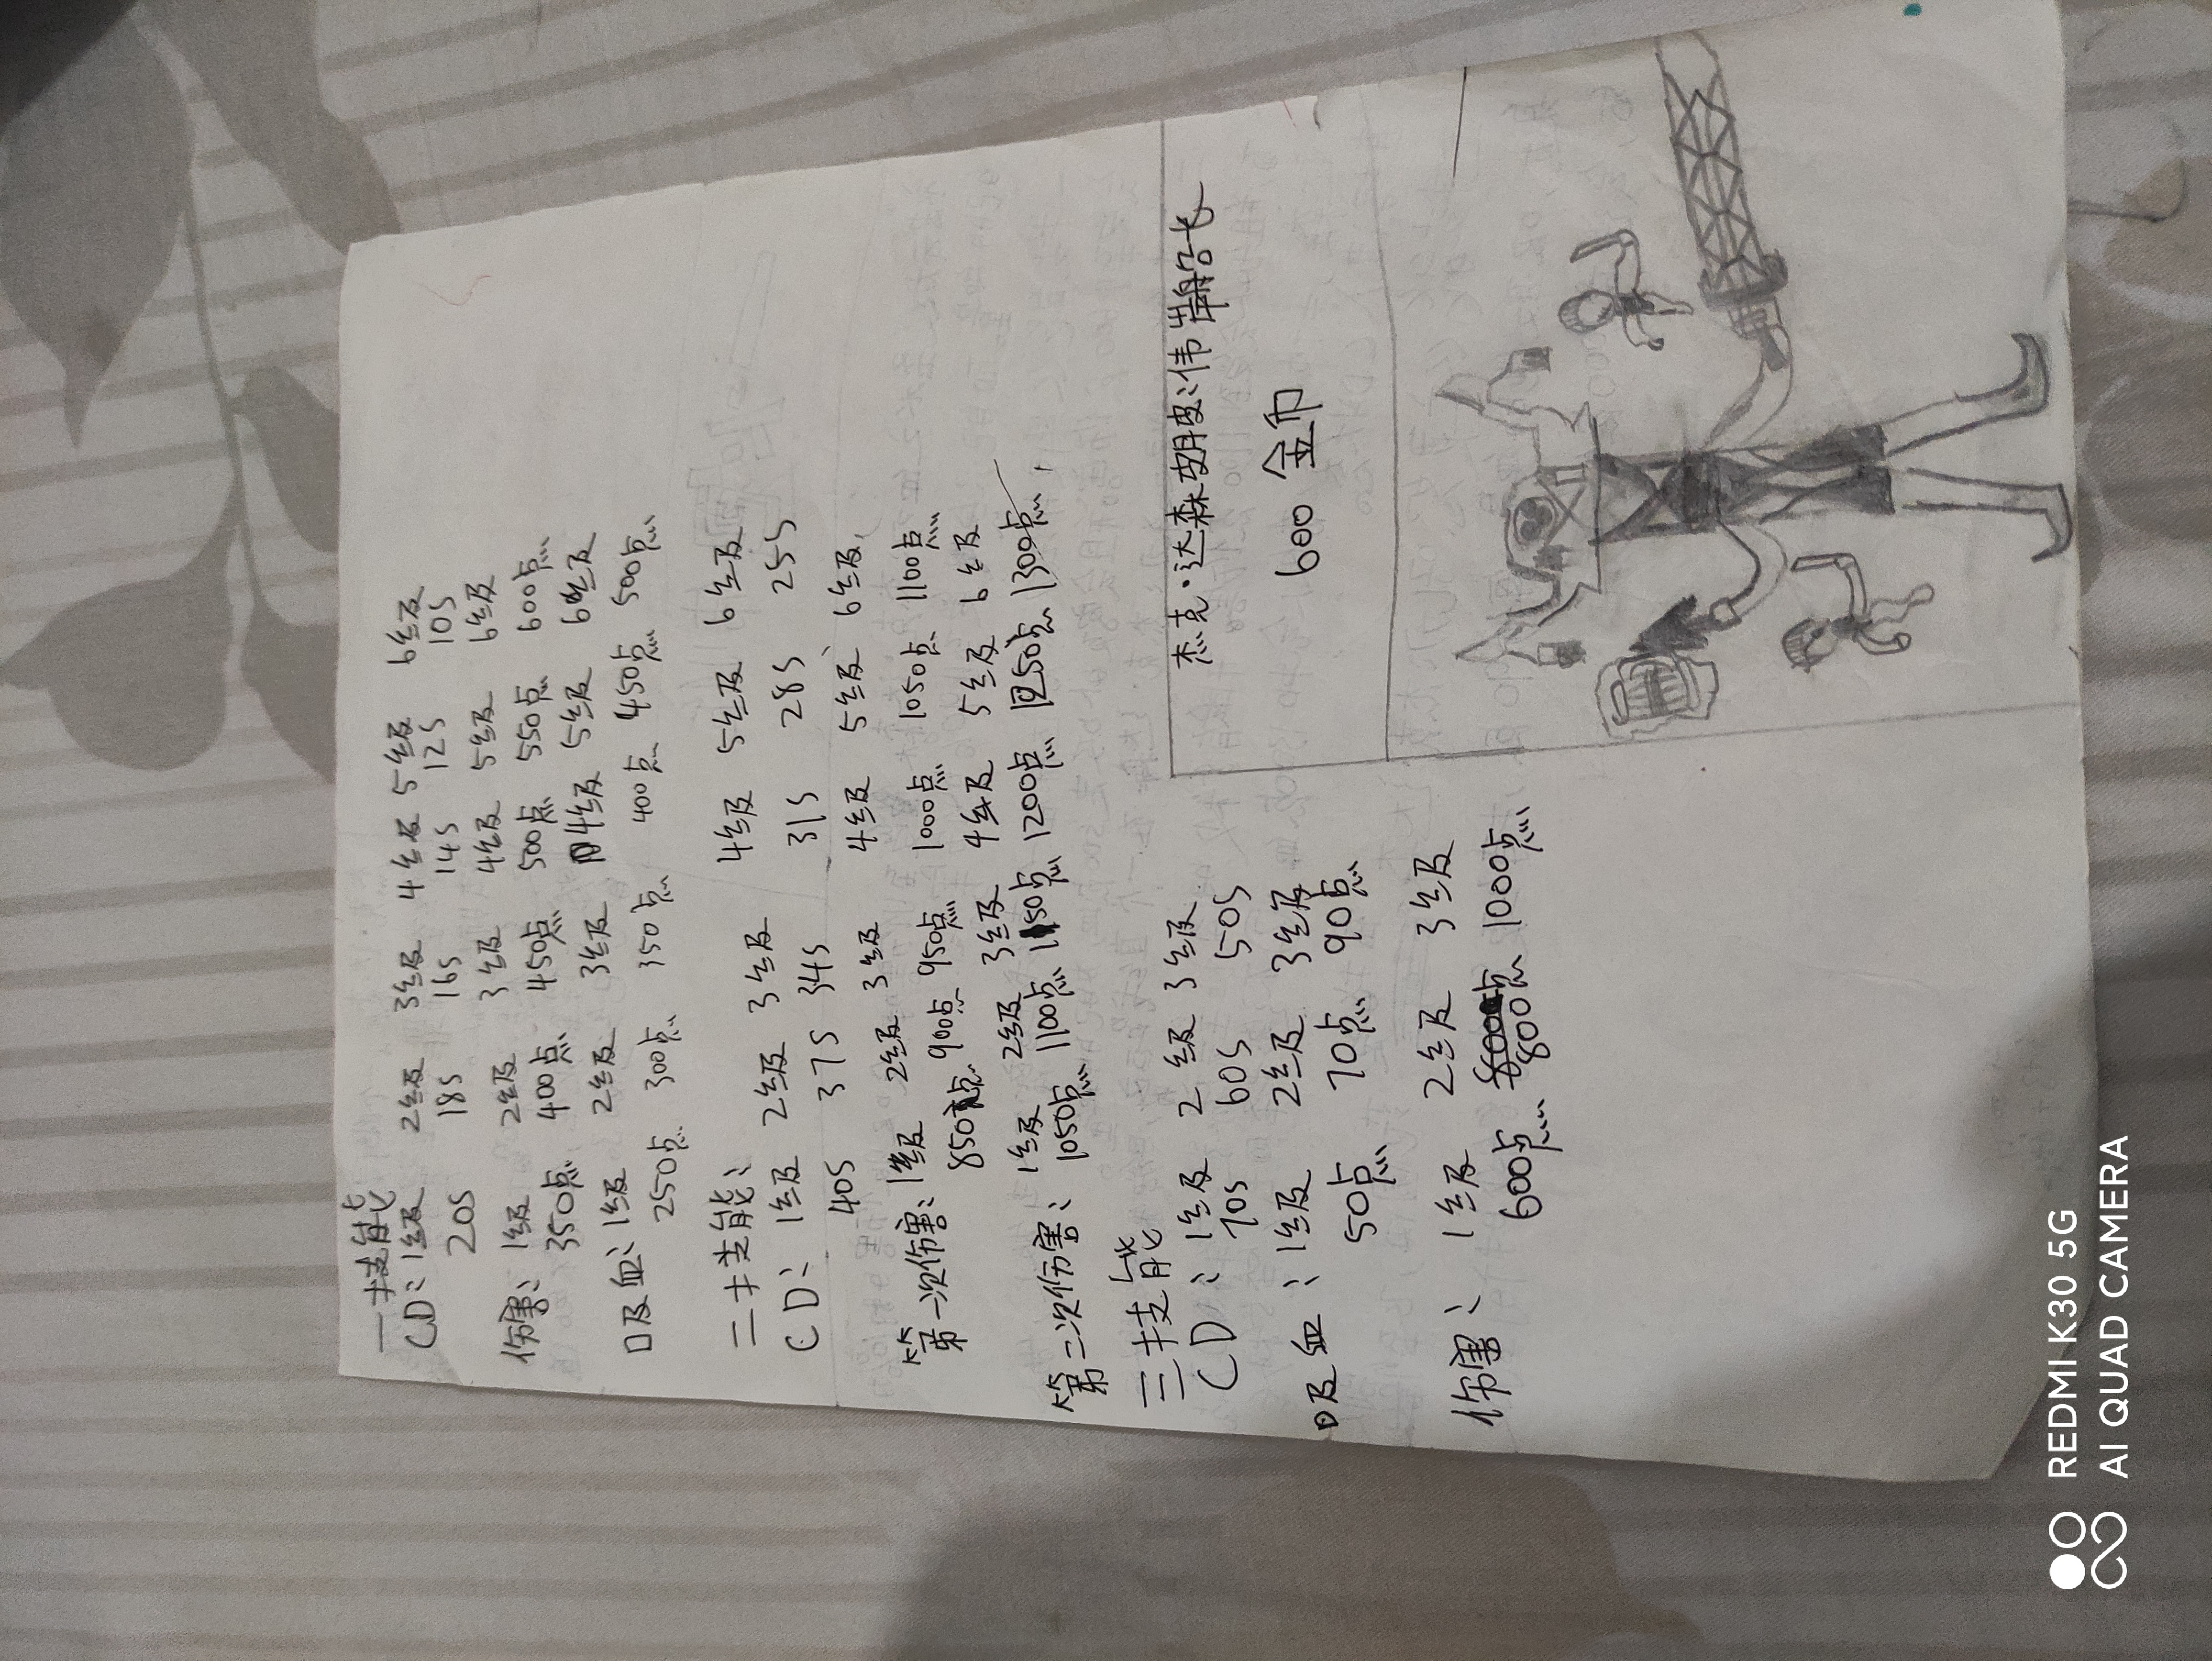 一技能
CD：1级 2级 3级 4级 5级 6级
20S 18S 16S 14S 12S 10S
伤害：1级 2级 3级 4级 5级 6级
350点 400点 450点 500点 550点 600点
吸血：1级 2级 3级 4级 5级 6级
250点 300点 350点 400点 450点 500点
二技能：
CD：1级 2级 3级 4级 5级 6级
40S 37S 34S 31S 28S 25S
第一次伤害：1级 2级 3级 4级 5级 6级
850点 900点 950点 1000点 1050点 1100点
第二次伤害：1级 2级 3级 4级 5级 6级
1050点 1100点 1150点 1200点 1250点 1300点
三技能
CD：1级 2级 3级
70S 60S 50S
吸血：1级 2级 3级
50点 70点 90点
伤害：1级 2级 3级
600点 800点 1000点
杰克·达森
600 金币
REDMI K30 5G
AI QUAD CAMERA